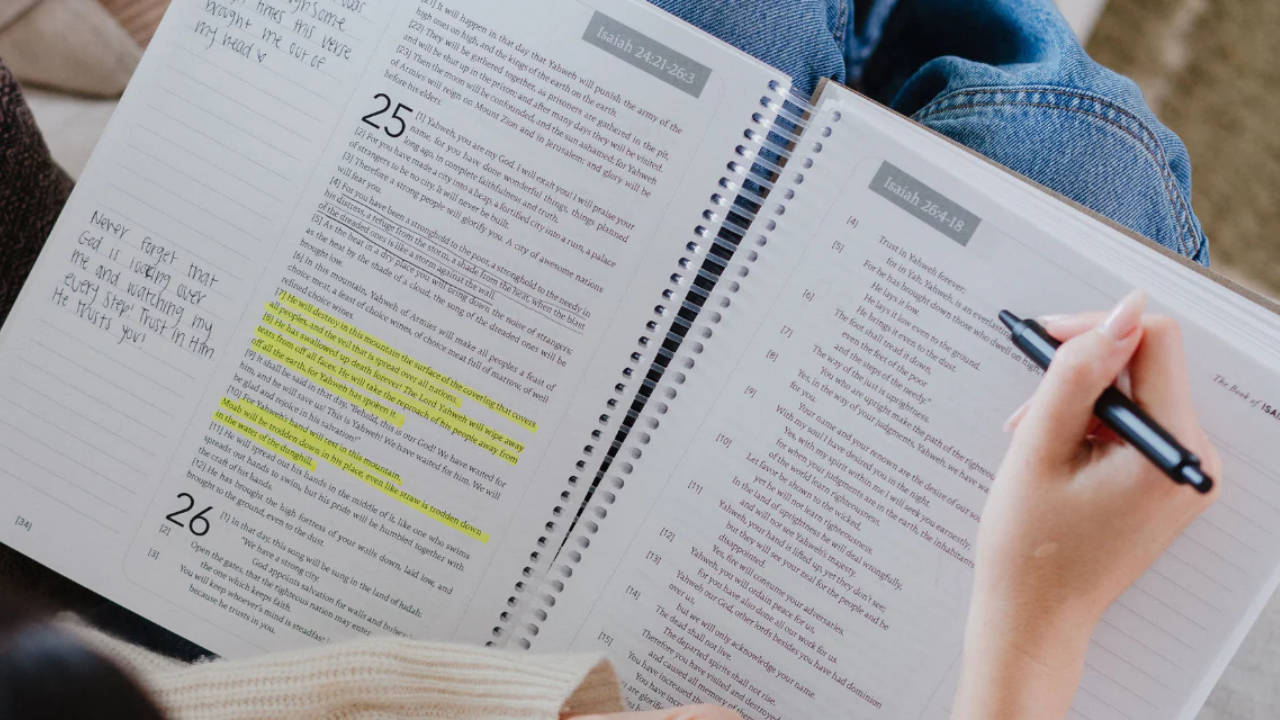 times this verse
brought me out of
my head
Never forget that
God is looking over
me and watching my
every step! Trust in Him
He trusts you!
[34]
Isaiah 24:21-26:3
[21] It will happen in that day that Yahweh will punish the army of the
high ones on high, and the kings of the earth on the earth.
[22] They will be gathered together, as prisoners are gathered in the pit,
and will be shut up in the prison; and after many days they will be visited.
[23] Then the moon will be confounded, and the sun ashamed; for Yahweh
of Armies will reign on Mount Zion and in Jerusalem; and glory will be
before his elders.
25
[1] Yahweh, you are my God. I will exalt you! I will praise your
name, for you have done wonderful things, things planned
long ago, in complete faithfulness and truth.
[2] For you have made a city into a heap, a fortified city into a ruin, a palace
of strangers to be no city. It will never be built.
[3] Therefore a strong people will glorify you. A city of awesome nations
will fear you.
[4] For you have been a stronghold to the poor, a stronghold to the needy in
his distress, a refuge from the storm, a shade from the heat, when the blast
of the dreaded ones is like a storm against the wall.
[5] As the heat in a dry place you will bring down the noise of strangers;
as the heat by the shade of a cloud, the song of the dreaded ones will be
brought low.
[6] In this mountain, Yahweh of Armies will make all peoples a feast of
choice meat, a feast of choice wines, of choice meat full of marrow, of well
refined choice wines.
[7] He will destroy in this mountain the surface of the covering that covers
all peoples, and the veil that is spread over all nations.
[8] He has swallowed up death forever! The Lord Yahweh will wipe away
tears from off all faces. He will take the reproach of his people away from
off all the earth, for Yahweh has spoken it.
[9] It shall be said in that day, "Behold, this is our God! We have waited for
him, and he will save us! This is Yahweh! We have waited for him. We will
be glad and rejoice in his salvation!"
[10] For Yahweh's hand will rest in this mountain.
Moab will be trodden down in his place, even like straw is trodden down
in the water of the dunghill.
[11] He will spread out his hands in the middle of it, like one who swims
spreads out hands to swim, but his pride will be humbled together with
the craft of his hands.
[12] He has brought the high fortress of your walls down, laid low, and
brought to the ground, even to the dust.
26
[1] In that day, this song will be sung in the land of Judah:
"We have a strong city.
God appoints salvation for walls and bulwarks.
[2] Open the gates, that the righteous nation may enter:
the one which keeps faith.
[3] You will keep whoever's mind is steadfast
because he trusts in you.
Isaiah 26:4-18
[4] Trust in Yahweh forever;
for in Yah, Yahweh, is an everlasting
[5] For he has brought down those who dwell on high
He lays it low.
He lays it low even to the ground.
He brings it even to the dust.
[6] The foot shall tread it down,
even the feet of the poor
and the steps of the needy."
[7] The way of the just is uprightness.
You who are upright make the path of the righteous
[8] Yes, in the way of your judgments, Yahweh, we have
for you.
Your name and your renown are the desire of our
[9] With my soul I have desired you in the night.
Yes, with my spirit within me I will seek you earnestly;
for when your judgments are in the earth, the inhabitants
of the world learn righteousness.
[10] Let favor be shown to the wicked,
yet he will not learn righteousness.
In the land of uprightness he will deal wrongfully,
and will not see Yahweh's majesty.
[11] Yahweh, your hand is lifted up, yet they don't see;
but they will see your zeal for the people and be
disappointed.
Yes, fire will consume your adversaries.
[12] Yahweh, you will ordain peace for us,
for you have also done all our work for us.
[13] Yahweh our God, other lords besides you have had dominion
over us,
but we will only acknowledge your name.
[14] The dead shall not live.
The departed spirits shall not rise.
Therefore you have visited and destroyed
and caused all memory of
[15] You have increased
You have
are glorified
The Book of ISA